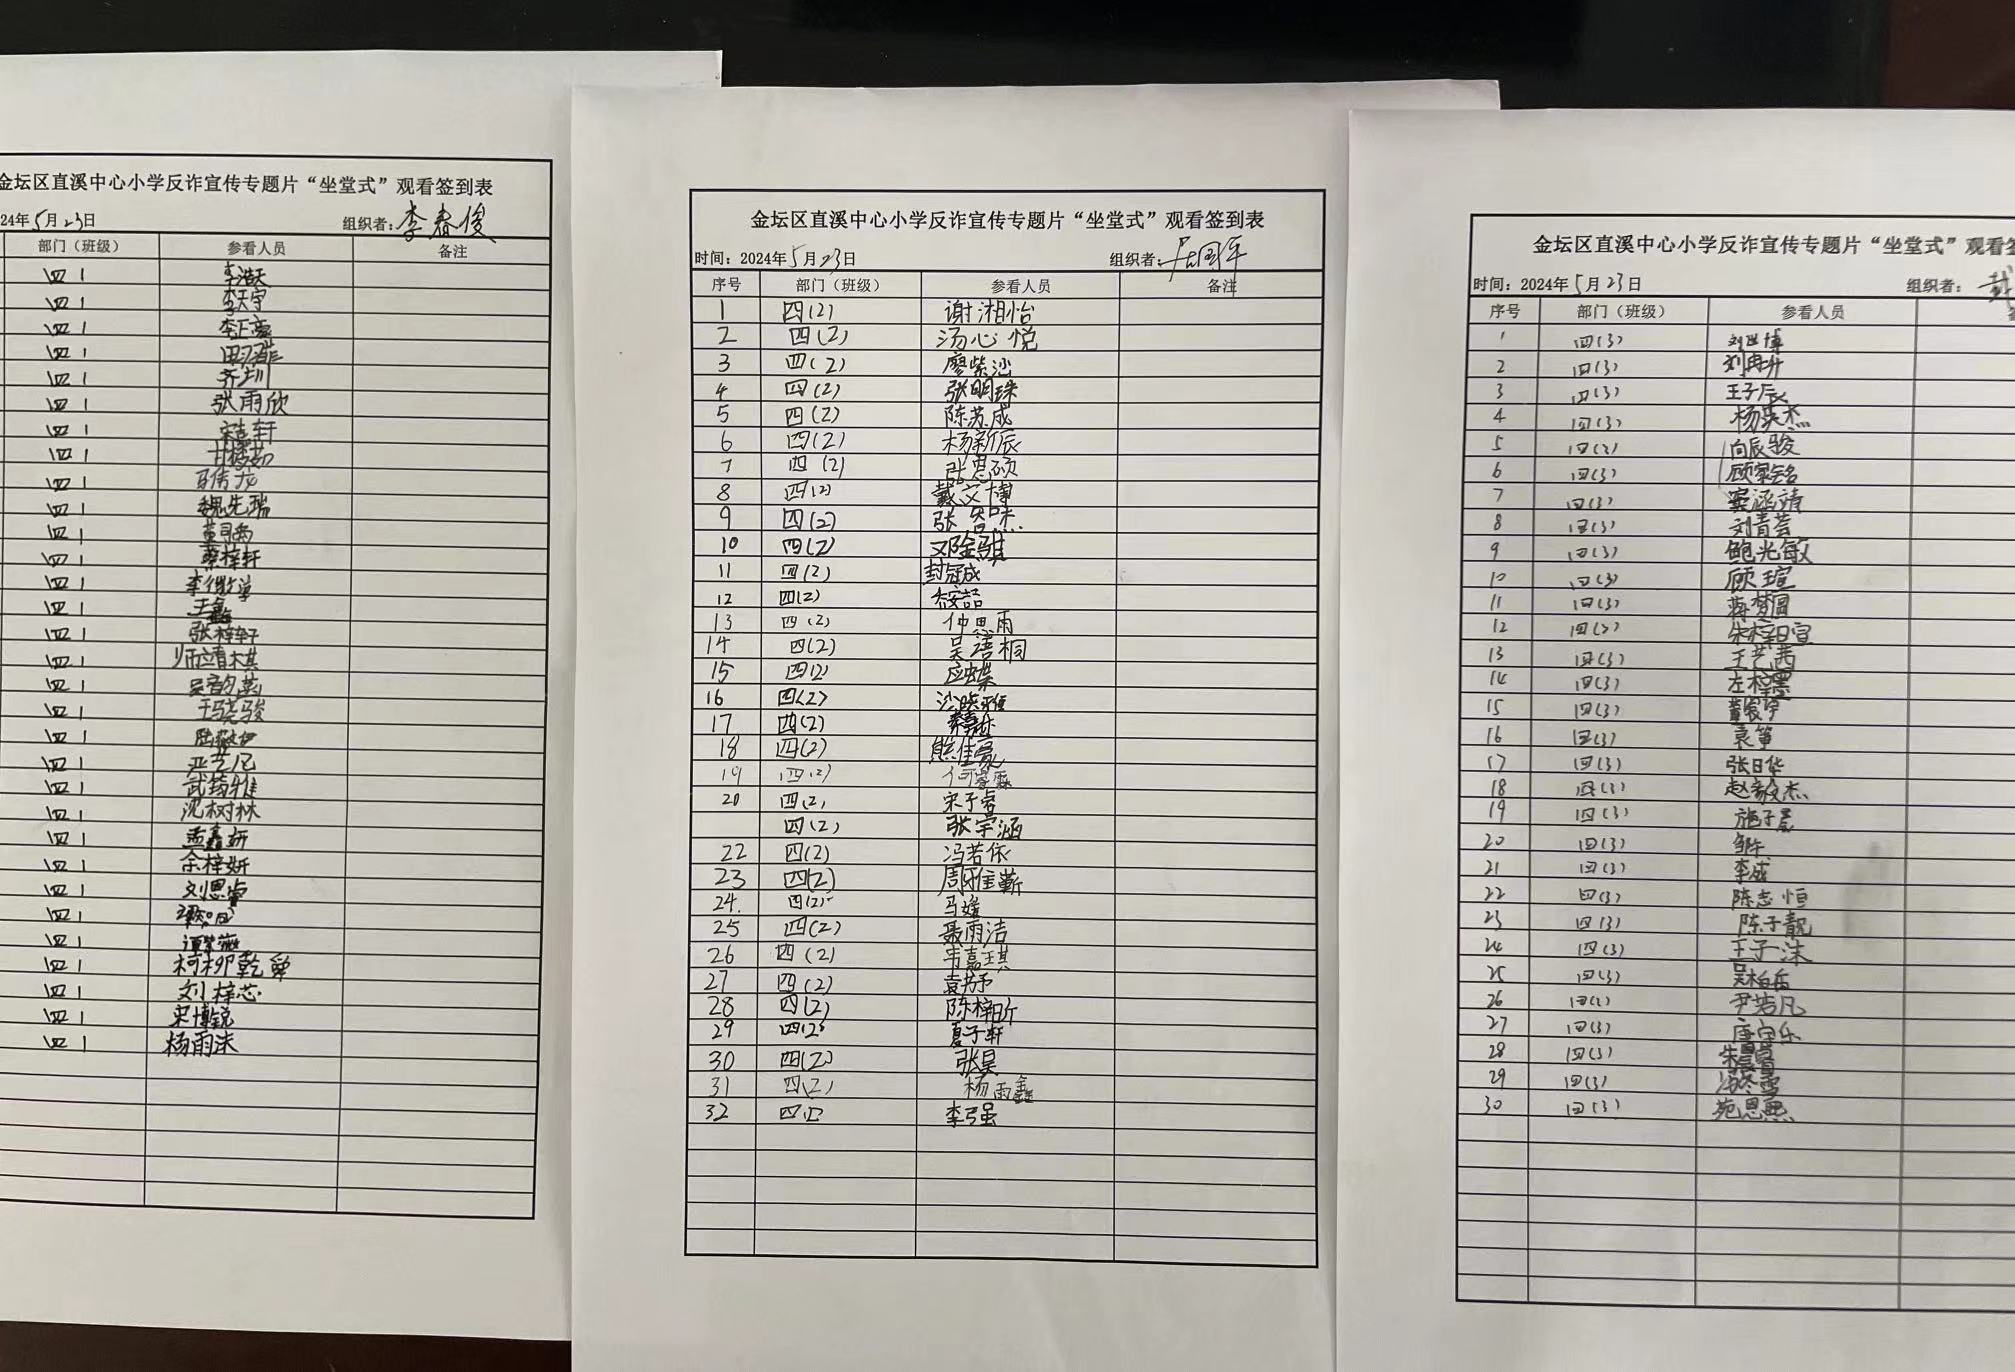 金坛区直溪中心小学反诈宣传专题片“坐堂式”观看签到表
24年5月23日 组织者:李春俊
部门（班级） 参看人员 备注
四1 李浩天
四1 李天宇
四1 李正亮
四1
四1 齐圳
四1 张雨欣
四1 宋嘉轩
四1
四1 马伟龙
四1 魏先瑞
四1
四1 蔡梓轩
四1
四1 王鑫
四1 张梓轩
四1
四1 吴韵菡
四1 王骁骏
四1
四1 严艺凡
四1 武筠雅
四1 沈树林
四1 孟鑫妍
四1 余梓妍
四1 刘恩睿
四1
四1
四1 柯柳乾舜
四1 刘梓芯
四1 宋博锐
四1 杨雨沫
金坛区直溪中心小学反诈宣传专题片“坐堂式”观看签到表
时间：2024年5月23日 组织者:
序号 部门（班级） 参看人员 备注
1 四(2) 谢湘怡
2 四(2) 汤心悦
3 四(2) 廖紫沙
4 四(2) 张明珠
5 四(2) 陈苏成
6 四(2) 杨新辰
7 四(2) 张思硕
8 四(2) 戴文博
9 四(2) 张
10 四(2)
11 四(2) 封冠成
12 四(2)
13 四(2) 仲思雨
14 四(2) 吴语桐
15 四(2) 应蝶
16 四(2)
17 四(2)
18 四(2) 熊佳豪
19 四(2) 何睿霖
20 四(2) 宋子睿
四(2) 张宇涵
22 四(2) 冯若依
23 四(2) 周雅蕲
24. 四(2) 马媛
25 四(2) 聂雨洁
26 四(2) 韦嘉琪
27 四(2) 袁艿予
28 四(2) 陈梓昕
29 四(2) 夏子轩
30 四(2) 张昊
31 四(2) 杨雨鑫
32 四(2) 李弓强
金坛区直溪中心小学反诈宣传专题片“坐堂式”观看签
时间：2024年5月23日 组织者：
序号 部门（班级） 参看人员
1 四(3) 刘世博
2 四(3) 刘冉升
3 四(3) 王子辰
4 四(3) 杨英杰
5 四(3) 向辰骏
6 四(3) 顾家铭
7 四(3) 窦涵靖
8 四(3) 刘青芸
9 四(3) 鲍光敏
10 四(3) 顾瑄
11 四(3) 蒋梦圆
12 四(3) 朱梓萱
13 四(3) 王艺茜
14 四(3) 左梓墨
15 四(3)
16 四(3) 袁筝
17 四(3) 张日华
18 四(3) 赵毅杰
19 四(3) 施子晨
20 四(3) 邹午
21 四(3) 李成
22 四(3) 陈志恒
23 四(3) 陈子靓
24 四(3) 王子沫
25 四(3) 吴柏岳
26 四(3) 尹若凡
27 四(3) 唐宇乐
28 四(3)
29 四(3) 冯冬雪
30 四(3) 苑思熙